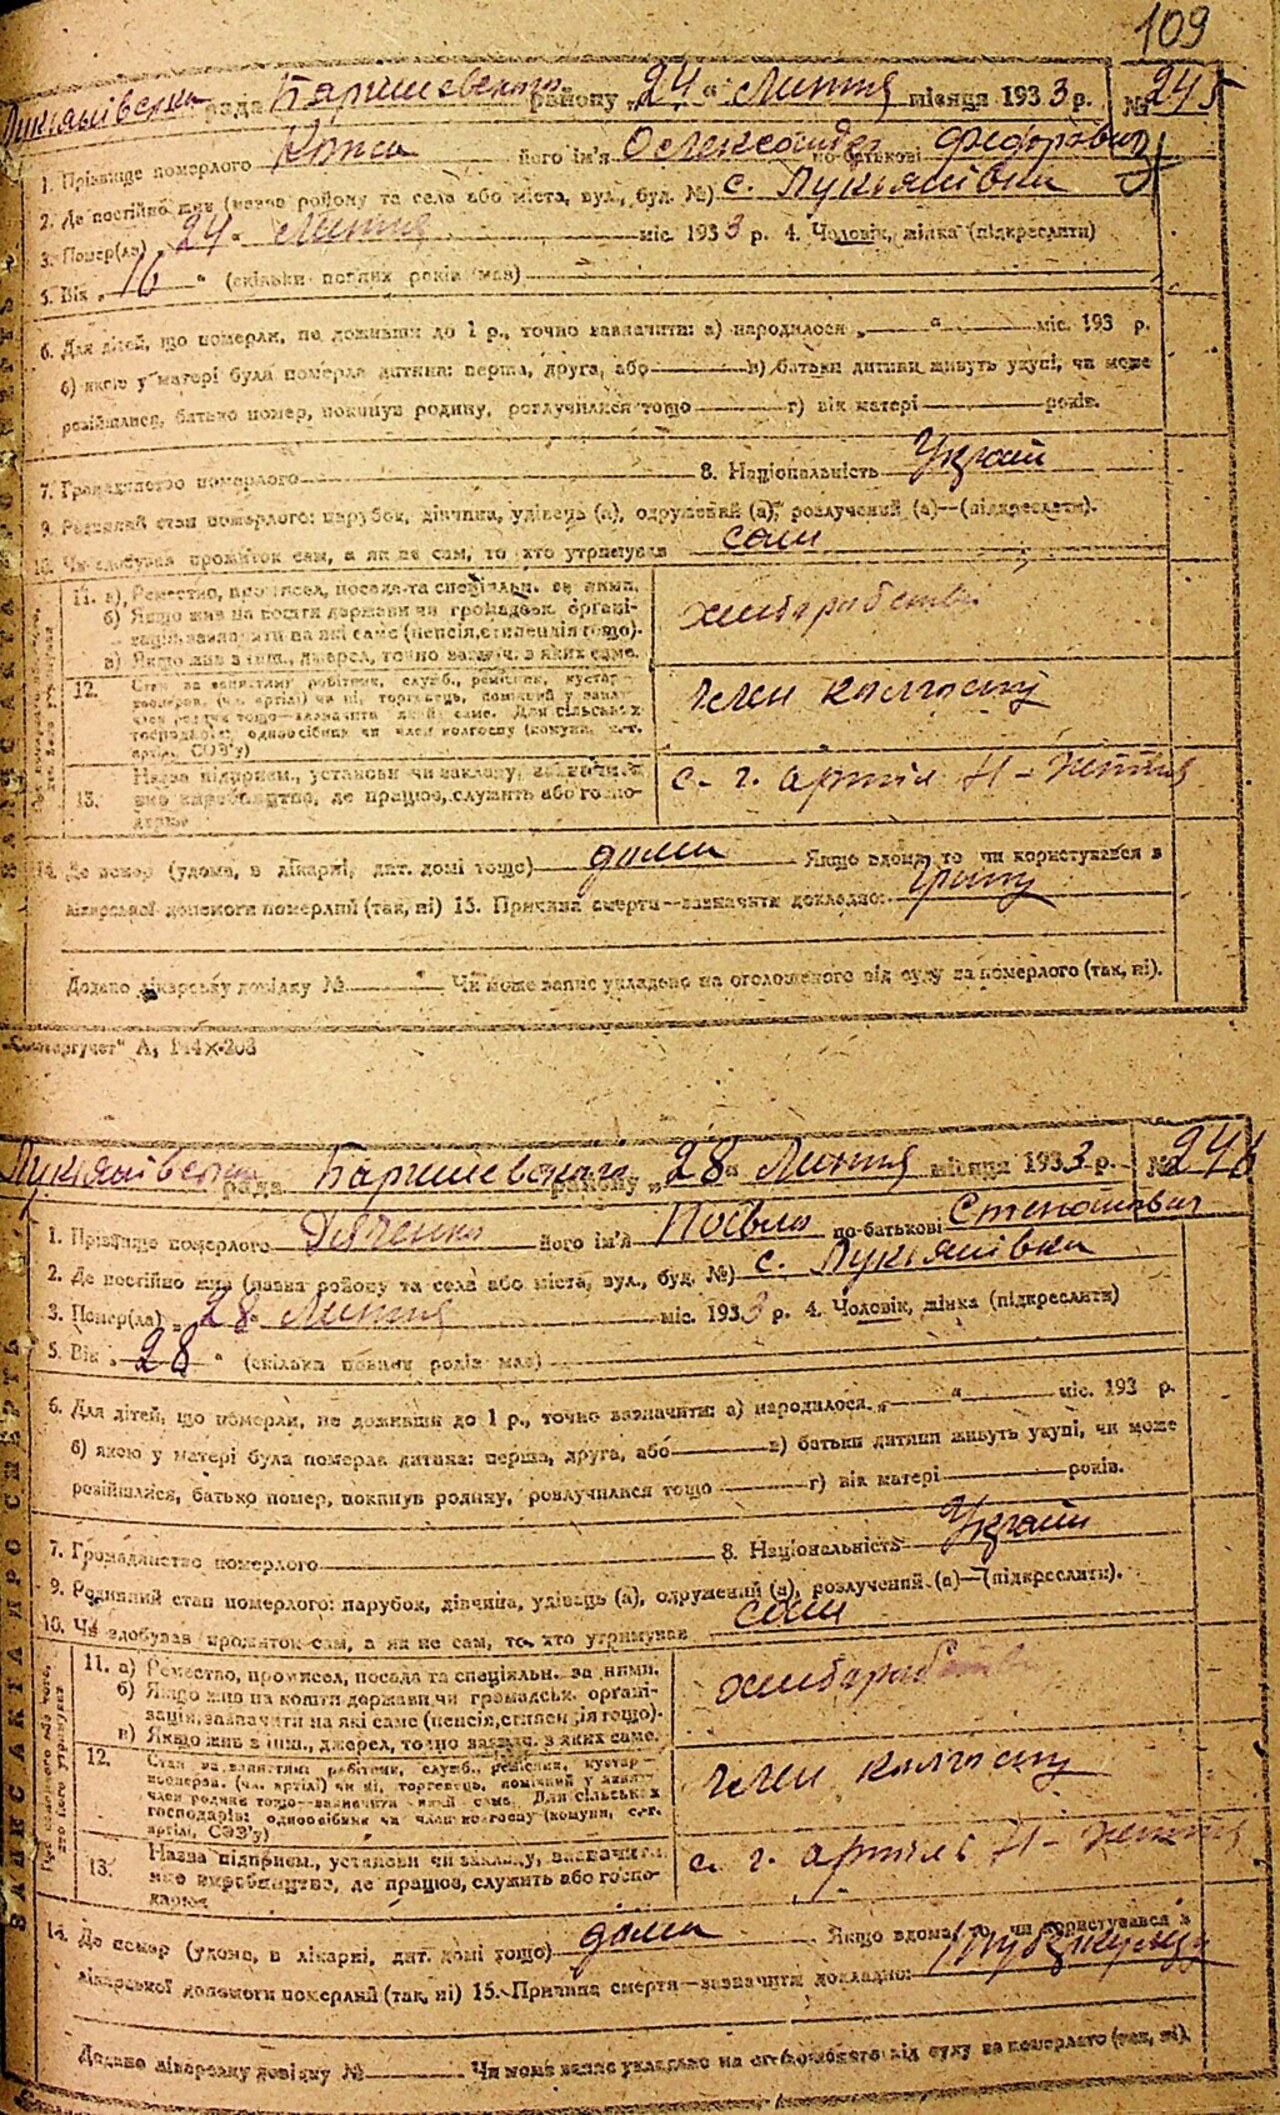 109
Лукіянівська рада Баришевського району „24“ Липня місяця 1933 р. № 245
1. Прізвище померлого його ім'я Олександр по-батькові Федорович
2. Де постійно жив (назва району та села або міста, вул., буд. №) с. Лукіянівка
3. Помер(ла) „24“ Липня міс. 1933 р. 4. Чоловік, жінка (підкреслити)
5. Вік „16“ (скільки повних років мав)
6. Для дітей, що померли, не доживши до 1 р., точно зазначити: а) народилося „ “ міс. 193 р.
б) якою у матері була померла дитина: перша, друга, або в) батьки дитини живуть укупі, чи може
розійшлися, батько помер, покинув родину, розлучилися тощо г) вік матері років.
7. Громадянство померлого 8. Національність Україн
9. Родинний стан померлого: парубок, дівчина, удівець (а), одружений (а), розлучений (а)—(підкреслити).
10. Чи здобував прожиток сам, а як не сам, то хто утримував сам
11. а) Ремество, промисел, посада та спеціяльн. за ними.
б) Якщо жив на кошти держави чи громадськ. органі-
зації, зазначити на які саме (пенсія, стипендія тощо).
в) Якщо жив з інш. джерел, точно зазнач. з яких саме.
хліборобство
12. Стан за заняттям: робітник, служб., ремісник, кустар—
кооперов. (чл. артілі) чи ні, торговець, помічний у занят.
член родини тощо—зазначити який саме. Для сільських
господарів: одноосібник чи член колгоспу (комуни, с.-г.
артілі, СОЗ'у)
член колгоспу
13. Назва підприєм., установи чи закладу, зазначити
яке виробництво, де працює, служить або госпо-
дарює
с. г. артіль Н-життя
14. Де помер (удома, в лікарні, дит. домі тощо) дома Якщо вдома, то чи користувався з
лікарської допомоги померлий (так, ні) 15. Причина смерти—зазначити докладно:
Додано лікарську довідку № Чи може запис укладено на оголошеного від суду за померлого (так, ні).
ЗАПИС АКТА ПРО СМЕРТЬ
Лукіянівська рада Баришевського району „28“ Липня місяця 1933 р. № 246
1. Прізвище померлого Дяченко його ім'я Павло по-батькові Степанович
2. Де постійно жив (назва району та села або міста, вул., буд. №) с. Лукіянівка
3. Помер(ла) „28“ Липня міс. 1933 р. 4. Чоловік, жінка (підкреслити)
5. Вік „28“ (скільки повних років мав)
6. Для дітей, що померли, не доживши до 1 р., точно зазначити: а) народилося „ “ міс. 193 р.
б) якою у матері була померла дитина: перша, друга, або в) батьки дитини живуть укупі, чи може
розійшлися, батько помер, покинув родину, розлучилися тощо г) вік матері років.
7. Громадянство померлого 8. Національність Україн
9. Родинний стан померлого: парубок, дівчина, удівець (а), одружений (а), розлучений (а)—(підкреслити).
10. Чи здобував прожиток сам, а як не сам, то хто утримував сам
11. а) Ремество, промисел, посада та спеціяльн. за ними.
б) Якщо жив на кошти держави чи громадськ. органі-
зації, зазначити на які саме (пенсія, стипендія тощо).
в) Якщо жив з інш. джерел, точно зазнач. з яких саме.
хліборобство
12. Стан за заняттям: робітник, служб., ремісник, кустар—
кооперов. (чл. артілі) чи ні, торговець, помічний у занят.
член родини тощо—зазначити який саме. Для сільських
господарів: одноосібник чи член колгоспу (комуни, с.-г.
артілі, СОЗ'у)
член колгоспу
13. Назва підприєм., установи чи закладу, зазначити
яке виробництво, де працює, служить або госпо-
дарює
с. г. артіль Н-життя
14. Де помер (удома, в лікарні, дит. домі тощо) дома Якщо вдома, то чи користувався з
лікарської допомоги померлий (так, ні) 15. Причина смерти—зазначити докладно:
Додано лікарську довідку № Чи може запис укладено на оголошеного від суду за померлого (так, ні).